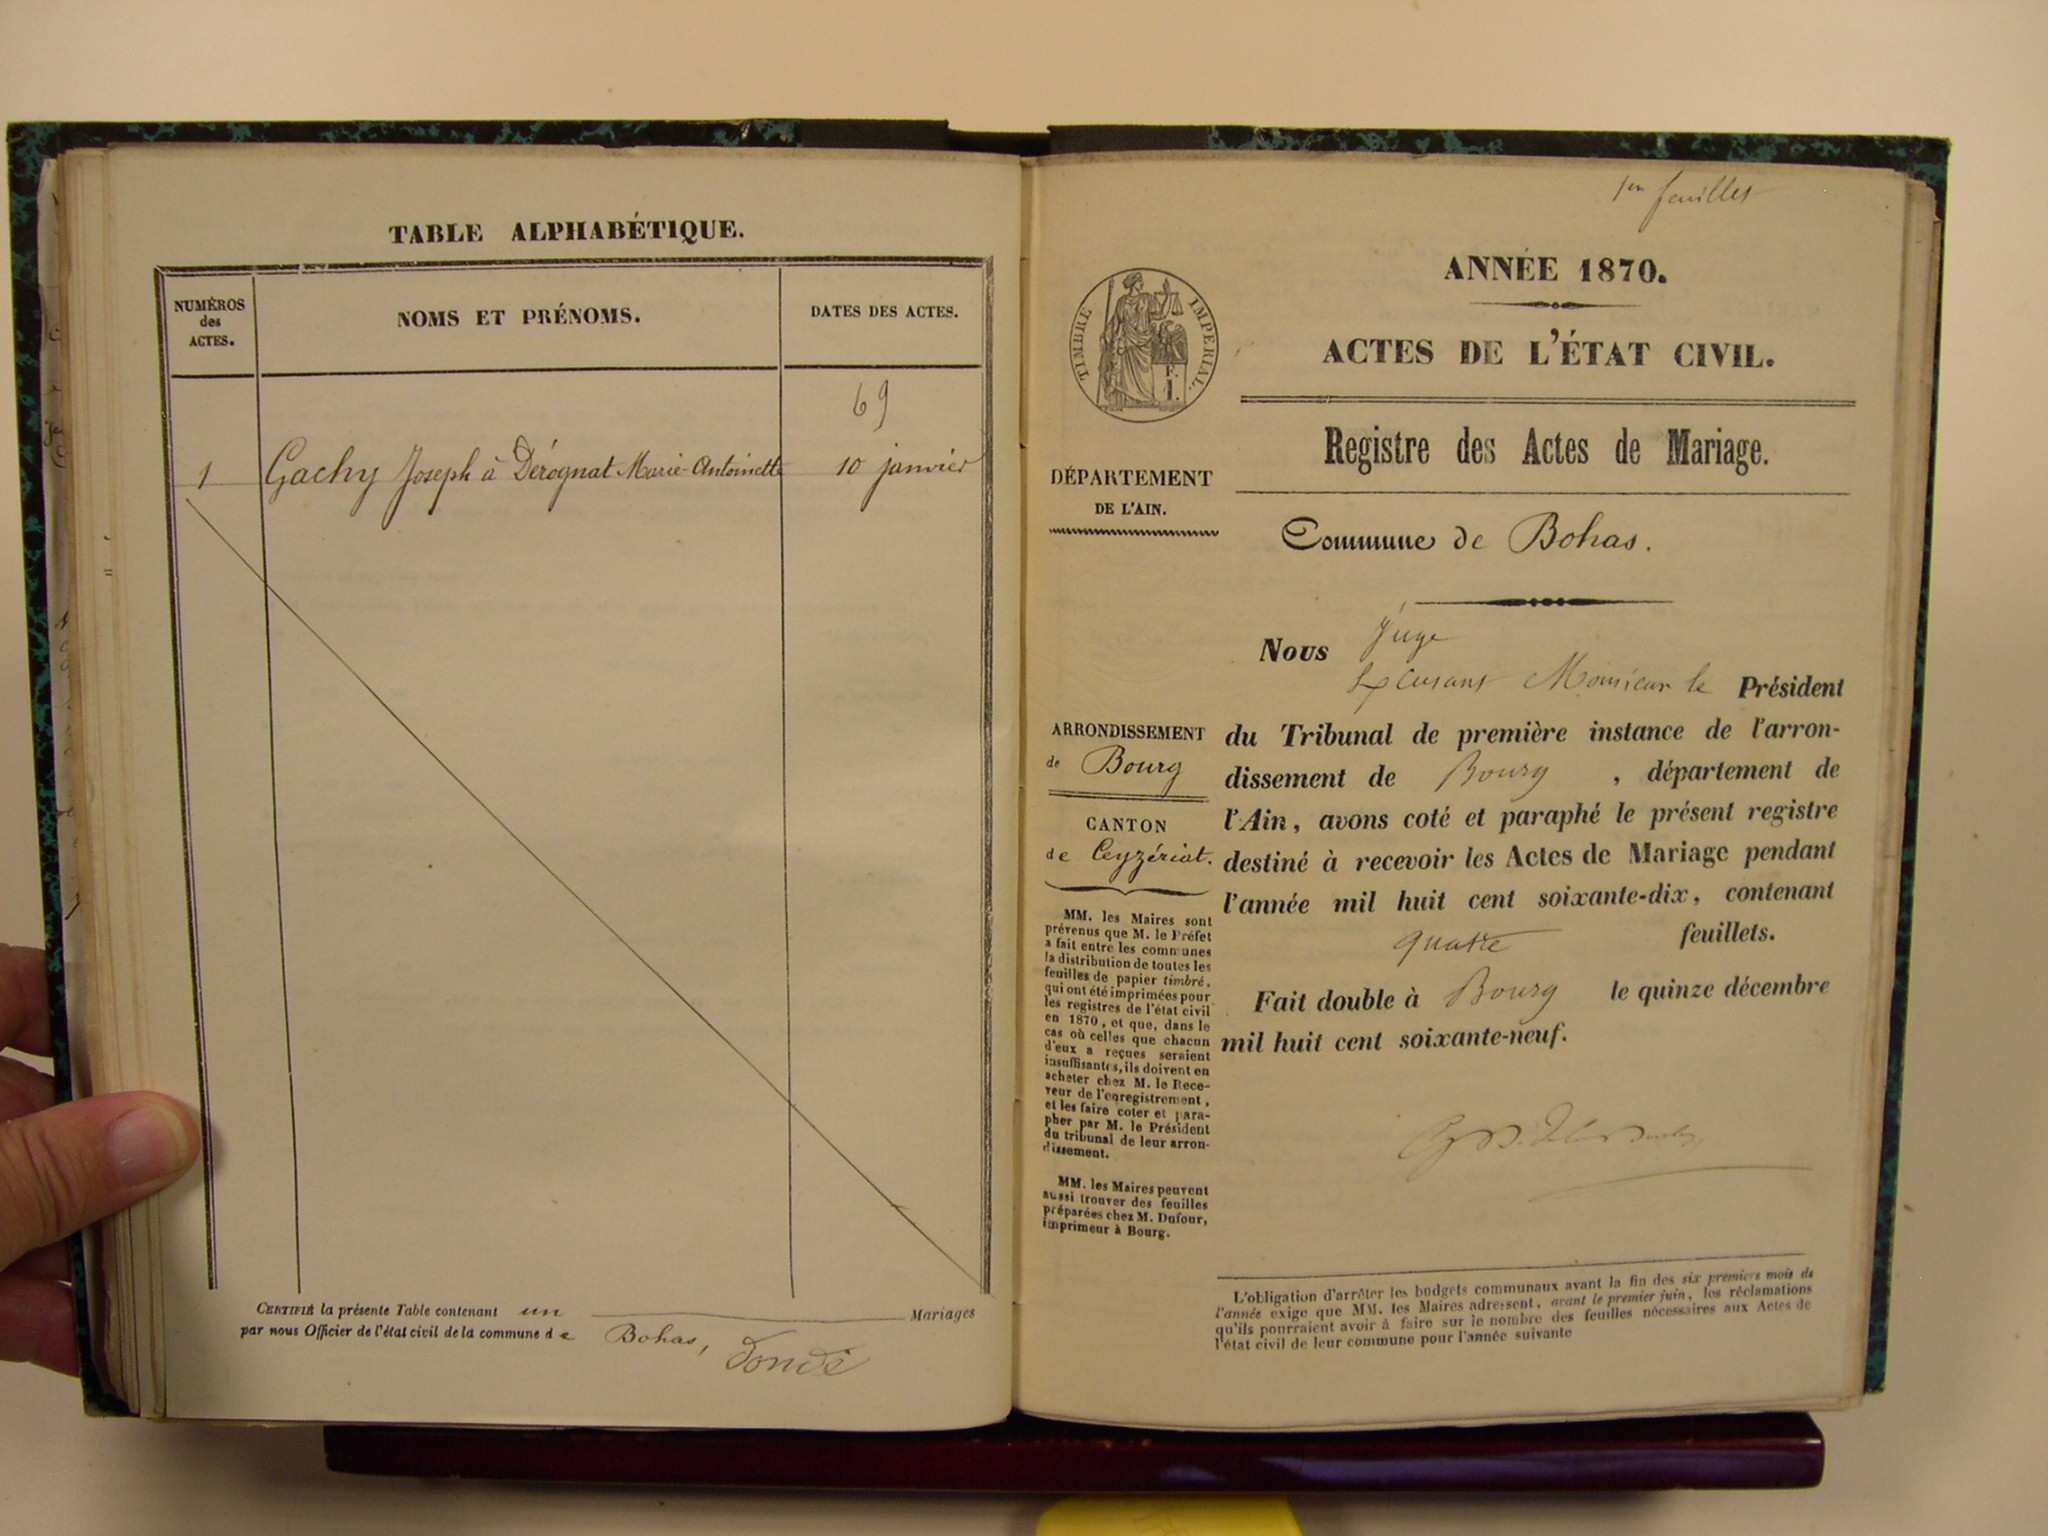 TABLE ALPHABÉTIQUE.
NUMÉROS
des
ACTES.
NOMS ET PRÉNOMS.
DATES DES ACTES.
69
1 Gachy Joseph à Dérognat Marie-Antoinette 10 janvier
CERTIFIÉ la présente Table contenant un Mariages
par nous Officier de l'état civil de la commune de Bohas,
1er feuillet
ANNÉE 1870.
ACTES DE L'ÉTAT CIVIL.
TIMBRE IMPÉRIAL.
Registre des Actes de Mariage.
DÉPARTEMENT
DE L'AIN.
Commune de Bohas.
Nous Juge
Monsieur le Président
du Tribunal de première instance de l'arron-
dissement de Bourg, département de
l'Ain, avons coté et paraphé le présent registre
destiné à recevoir les Actes de Mariage pendant
l'année mil huit cent soixante-dix, contenant
quatre feuillets.
Fait double à Bourg le quinze décembre
mil huit cent soixante-neuf.
ARRONDISSEMENT
de Bourg
CANTON
de Ceyzériat.
MM. les Maires sont
prévenus que M. le Préfet
a fait entre les communes
la distribution de toutes les
feuilles de papier timbré,
qui ont été imprimées pour
les registres de l'état civil
en 1870, et que, dans le
cas où celles que chacun
d'eux a reçues seraient
insuffisantes, ils doivent en
acheter chez M. le Rece-
veur de l'enregistrement,
et les faire coter et para-
pher par M. le Président
du tribunal de leur arron-
dissement.
MM. les Maires peuvent
aussi trouver des feuilles
préparées chez M. Dufour,
imprimeur à Bourg.
L'obligation d'arrêter les budgets communaux avant la fin des six premiers mois de
l'année exige que MM. les Maires adressent, avant le premier juin, les réclamations
qu'ils pourraient avoir à faire sur le nombre des feuilles nécessaires aux Actes de
l'état civil de leur commune pour l'année suivante